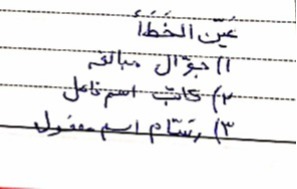 عَيّن الخَطَأ
۱) جوّال مبالغه
۲) كاتب اسم فاعل
۳) رسّام اسم مفعول